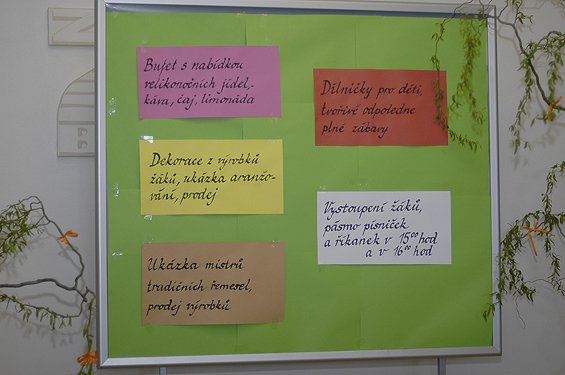 Bufet s nabídkou
velikonočních jídel,-
káva, čaj, limonáda
Dekorace z výrobků
žáků, ukázka aranžo-
vání, prodej
Ukázka mistrů
tradičních řemesel,
prodej výrobků
Dílničky pro děti,
tvořivé odpoledne
plné zábavy
Vystoupení žáků,
pásmo písniček
a říkanek v 15⁰⁰ hod
a v 16⁰⁰ hod